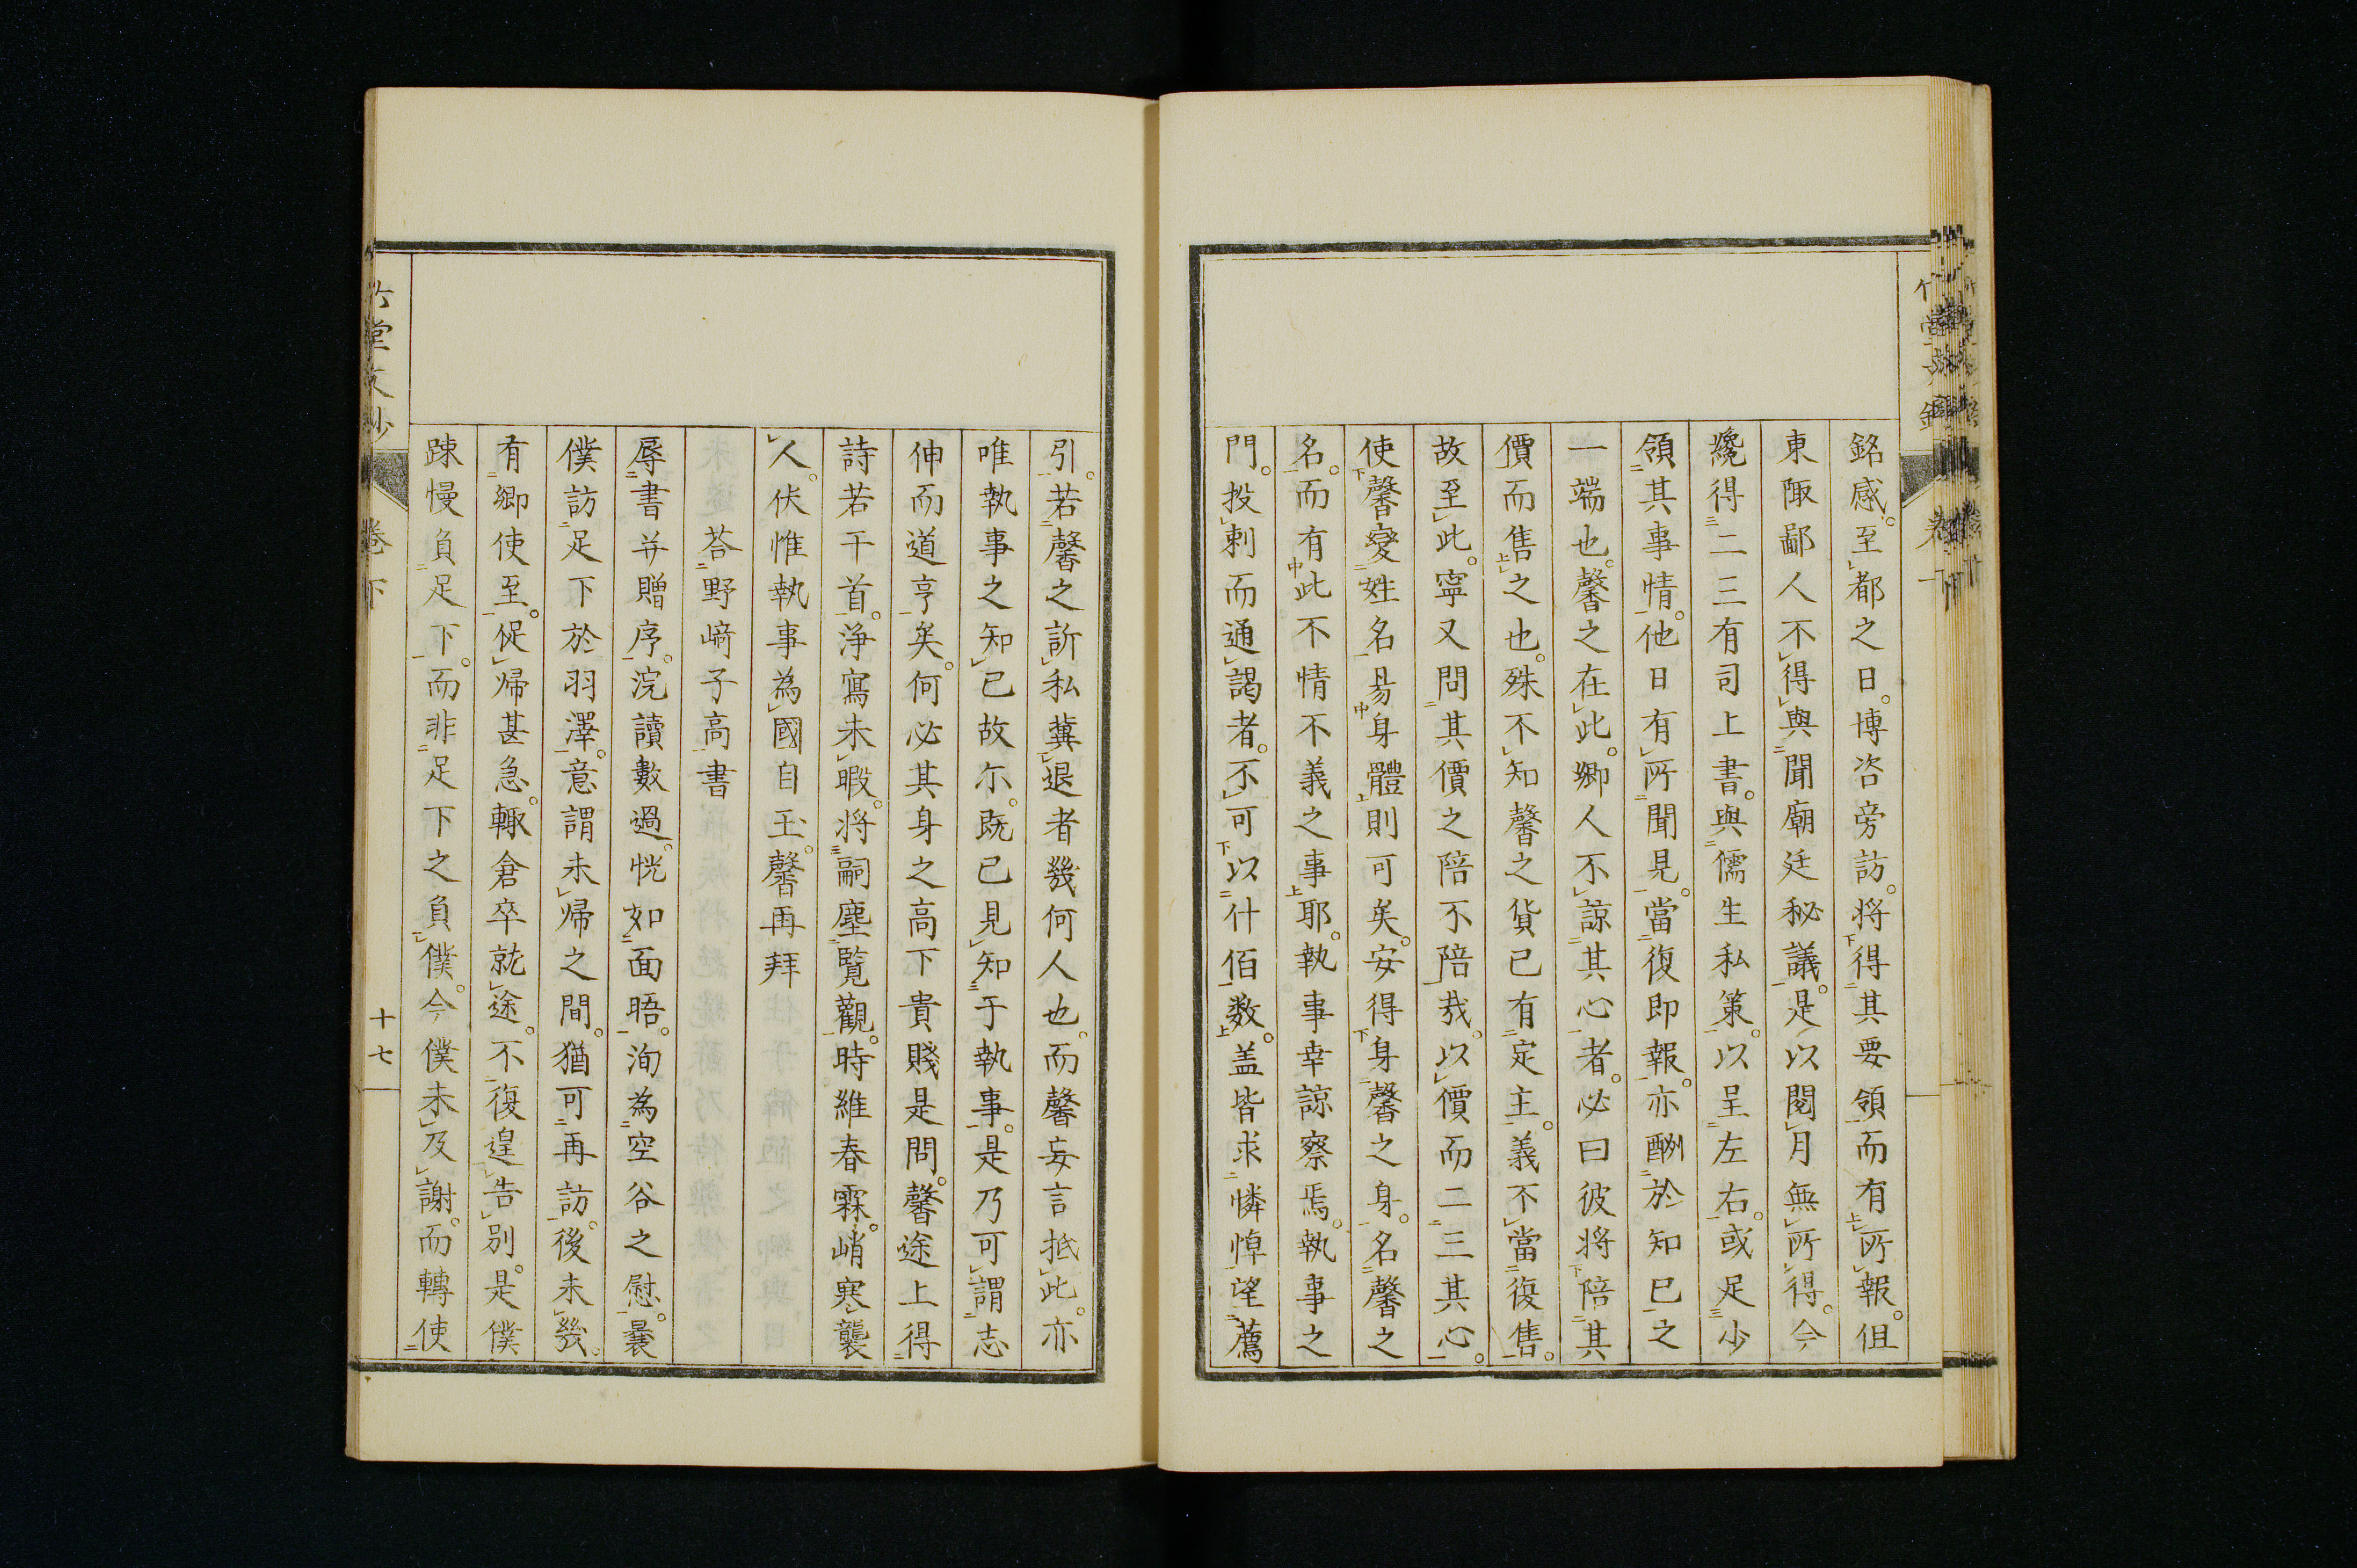 銘感。至都之日。博咨旁訪。将得其要領而有所報。但
東陬鄙人不得與聞廟廷秘議。是以閲月無所得。今
纔得二三有司上書。與儒生私策。以呈左右。或足少
領其事情。他日有所聞見。當復即報。亦酬於知已之
一端也。馨之在此。郷人不諒其心者。必曰彼将陪其
價而售之也。殊不知馨之貨已有定主。義不當復售。
故至此。寧又問其價之陪不陪哉。以價而二三其心。
使馨變姓名易身體則可矣。安得身馨之身。名馨之
名。而有此不情不義之事耶。執事幸諒察焉。執事之
門。投刺而通謁者。不可以什佰数。盖皆求憐悼望薦
引。若馨之訢私冀退者幾何人也。而馨妄言抵此。亦
唯執事之知已故尓。既已見知于執事。是乃可謂志
伸而道亨矣。何必其身之高下貴賤是問。馨途上得
詩若干首。浄寫未暇。将嗣塵覧觀。時維春霖。峭寒襲
人。伏惟執事為國自玉。馨再拜
荅野﨑子高書
辱書并贈序。浣讀數過。恍如面晤。洵為空谷之慰。曩
僕訪足下於羽澤。意謂未帰之間。猶可再訪。後未幾。
有郷使至。促帰甚急。輙倉卒就途。不復遑告別。是僕
踈慢負足下。而非足下之負僕。今僕未及謝。而轉使
竹堂文鈔
卷下
十七